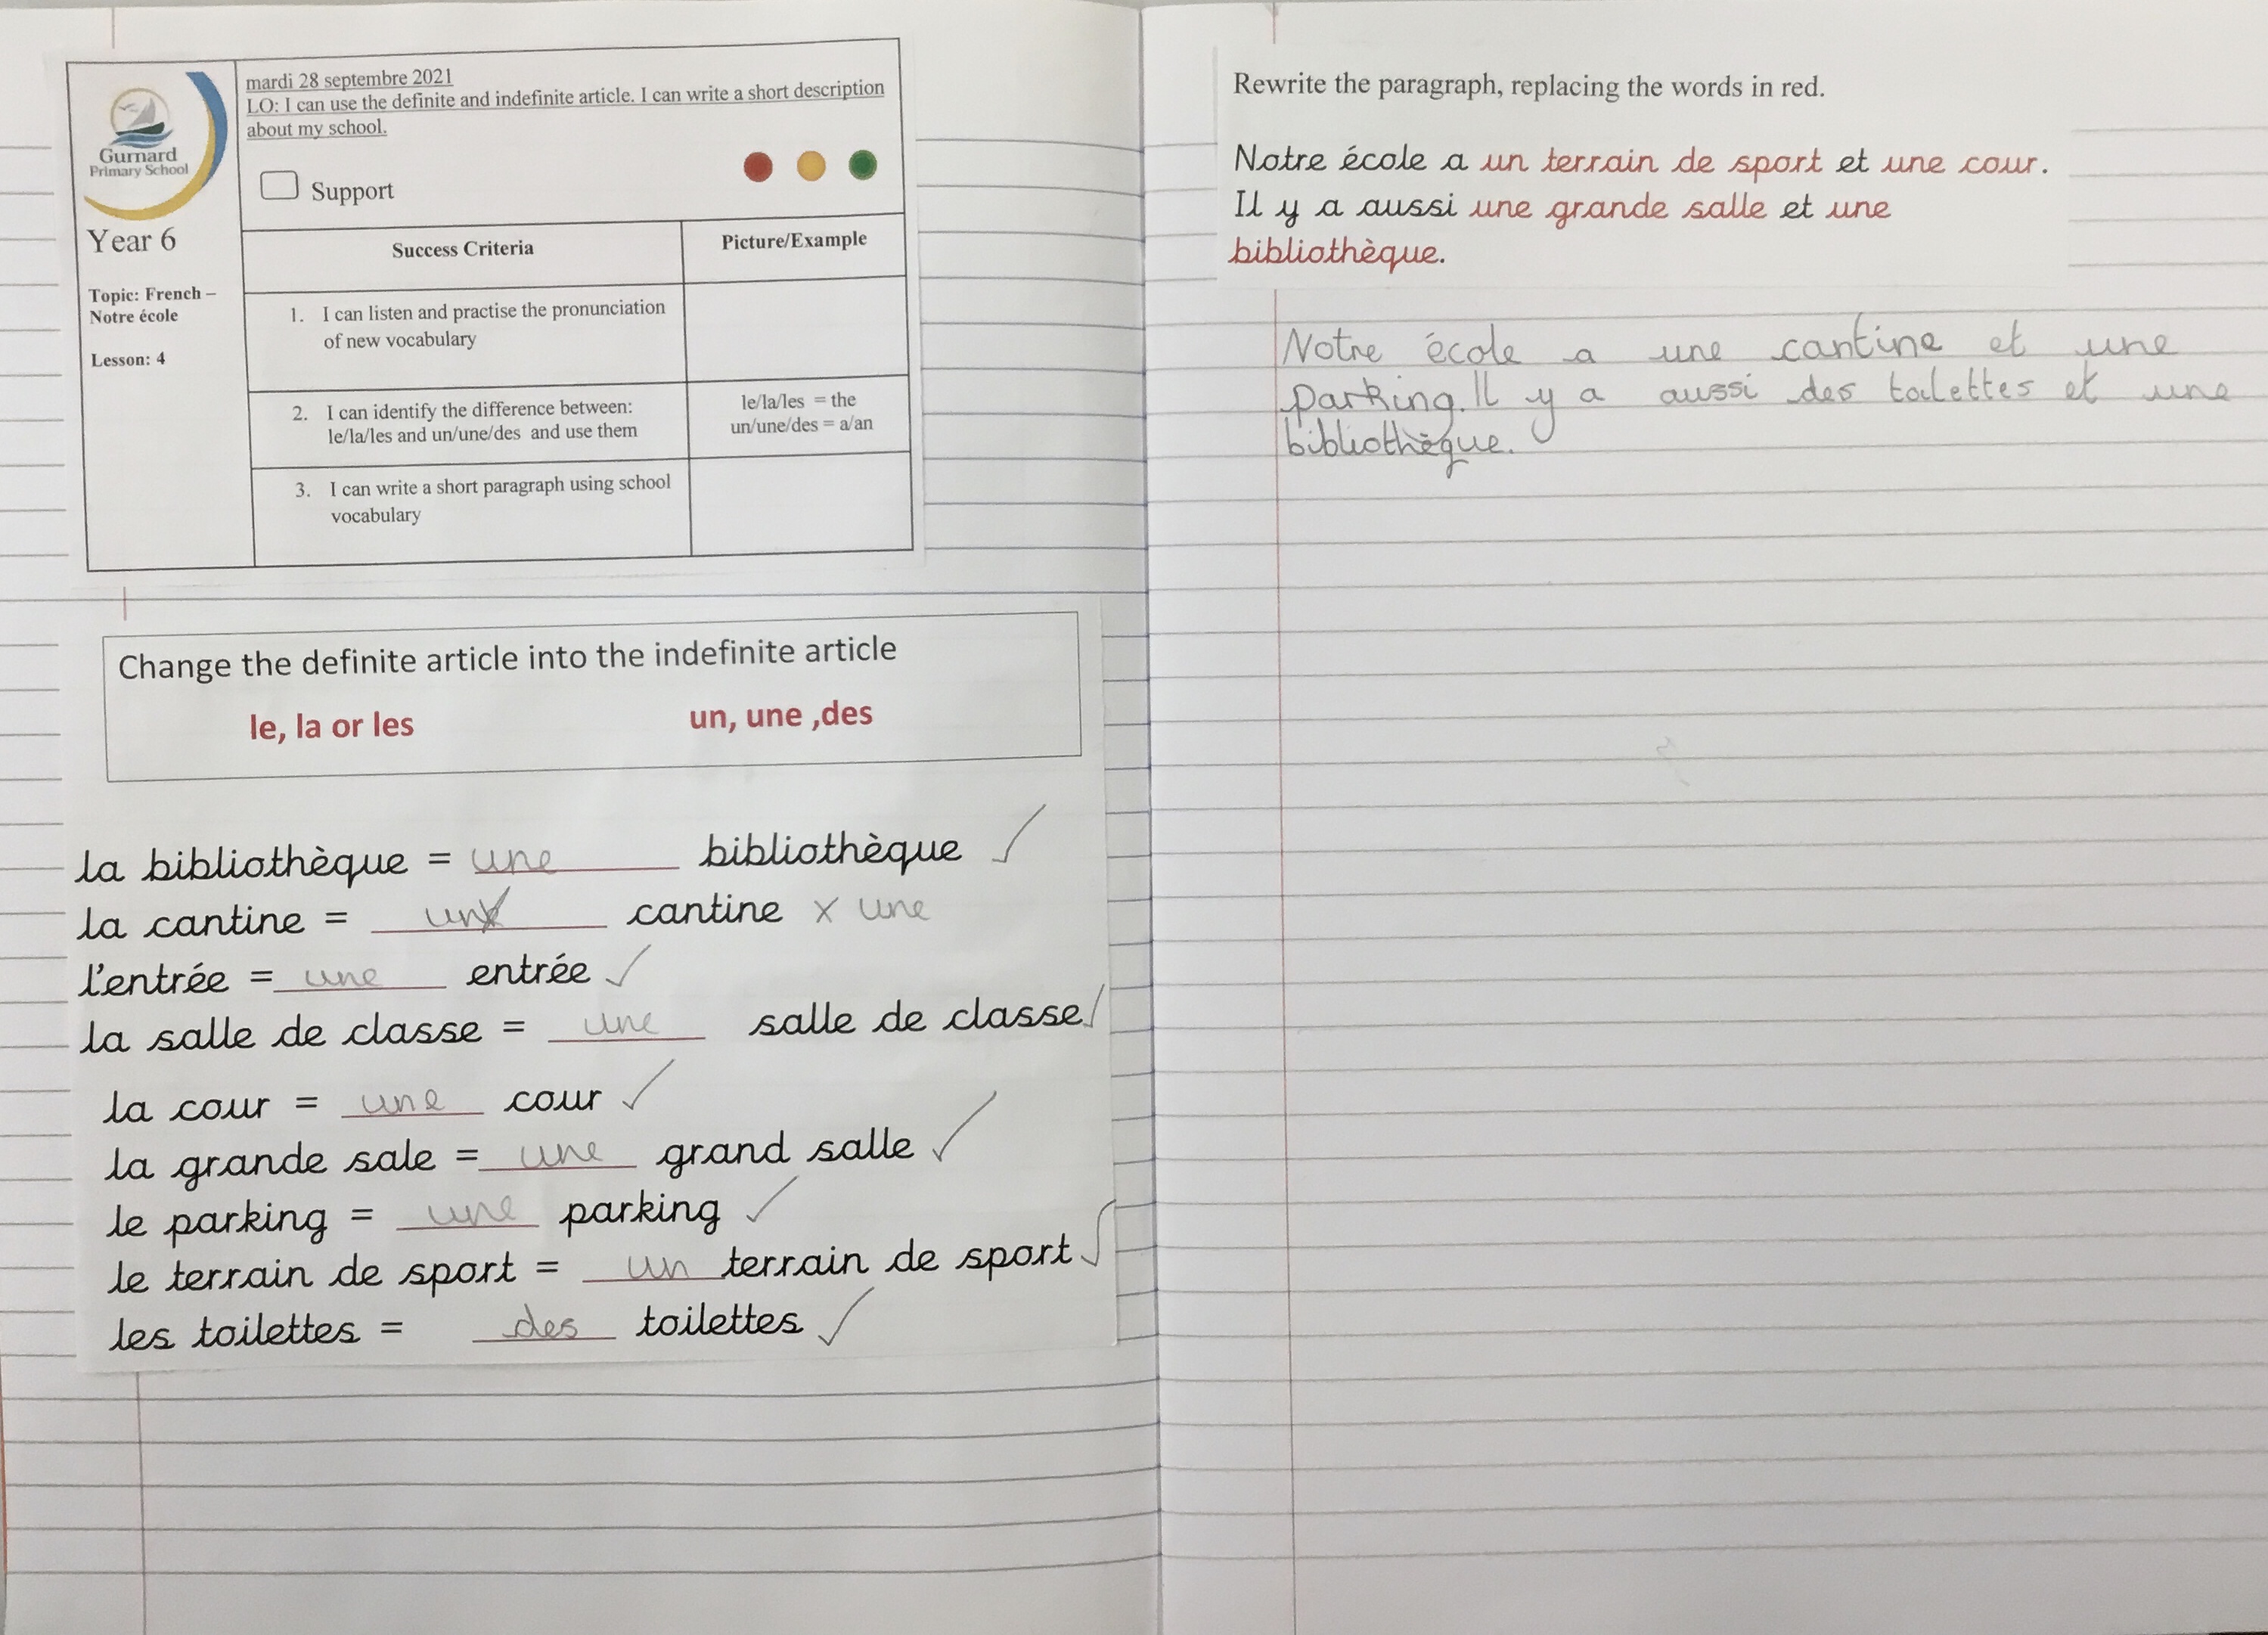 Gurnard
Primary School
Year 6
Topic: French –
Notre école
Lesson: 4
mardi 28 septembre 2021
LO: I can use the definite and indefinite article. I can write a short description
about my school.
Support
Success Criteria
Picture/Example
1. I can listen and practise the pronunciation
of new vocabulary
2. I can identify the difference between:
le/la/les and un/une/des and use them
le/la/les = the
un/une/des = a/an
3. I can write a short paragraph using school
vocabulary
Change the definite article into the indefinite article
le, la or les un, une ,des
la bibliothèque = une bibliothèque ✓
la cantine = un cantine x une
l'entrée = une entrée ✓
la salle de classe = une salle de classe ✓
la cour = une cour ✓
la grande sale = une grand salle ✓
le parking = une parking ✓
le terrain de sport = un terrain de sport ✓
les toilettes = des toilettes ✓
Rewrite the paragraph, replacing the words in red.
Notre école a un terrain de sport et une cour.
Il y a aussi une grande salle et une
bibliothèque.
Notre école a une cantine et une
parking. Il y a aussi des toilettes et une
bibliothèque.